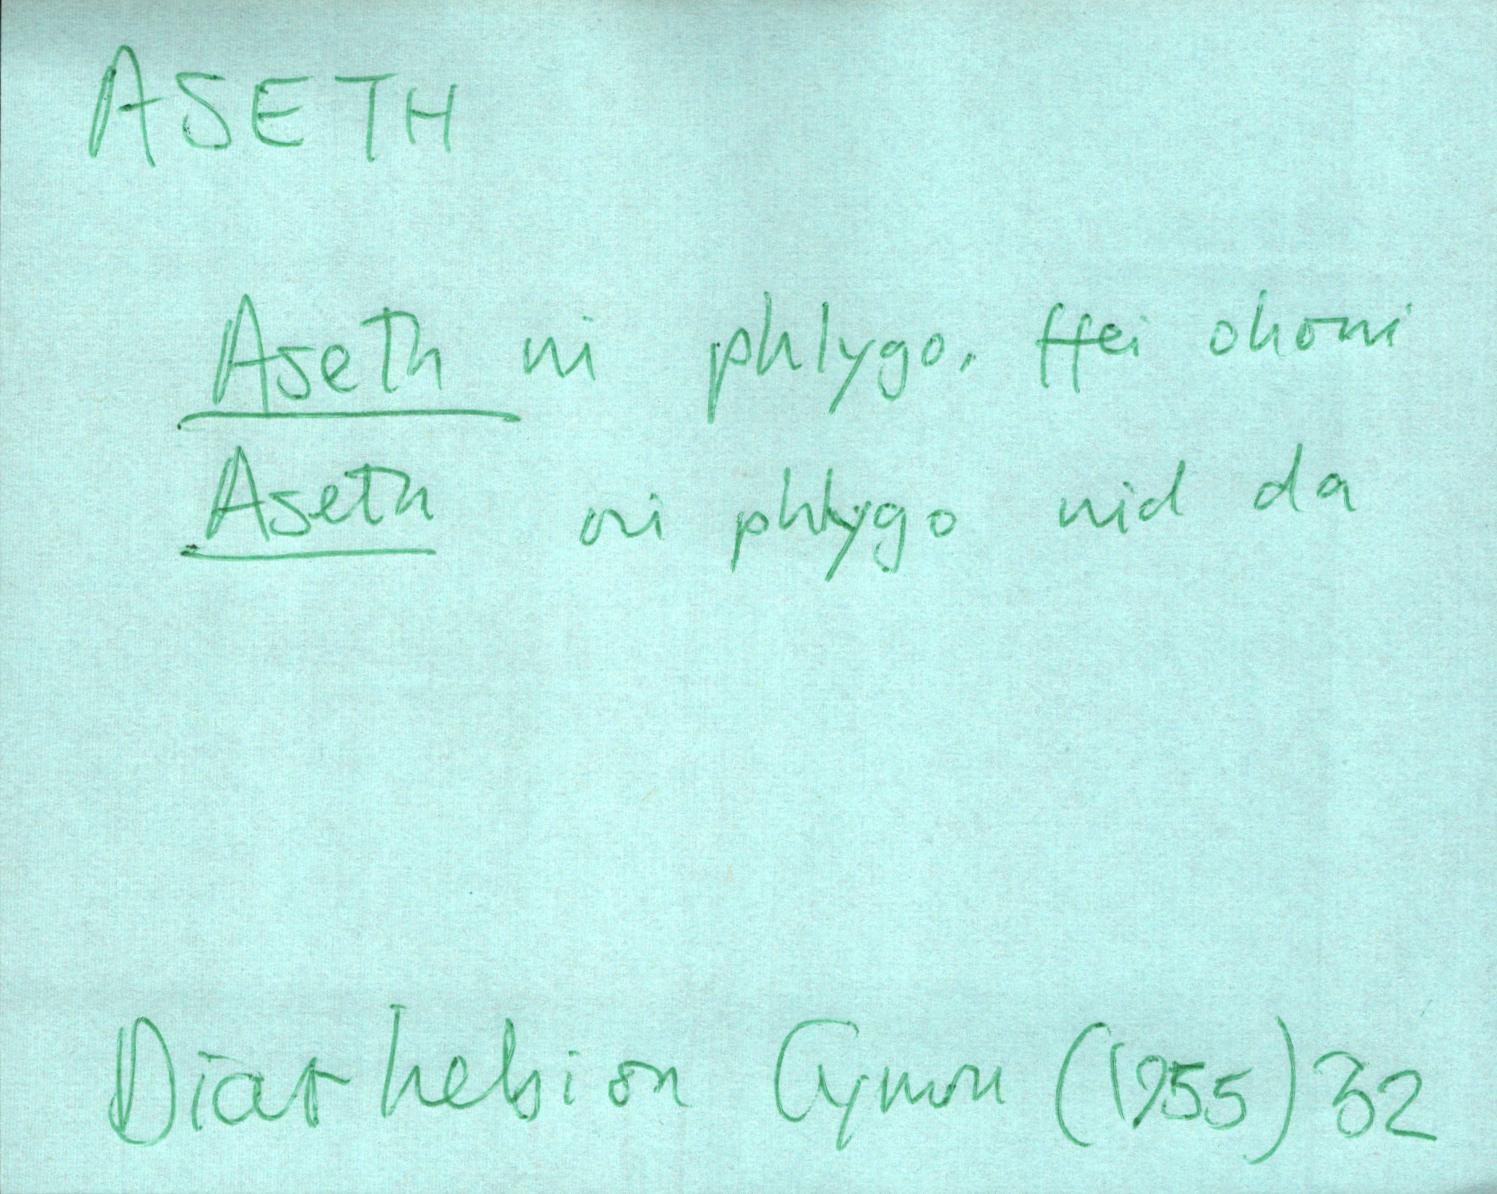 ASETH
Aseth ni phlygo, ffei ohoni
Aseth ni phlygo nid da
Diarhebion Cymru (1955) 32